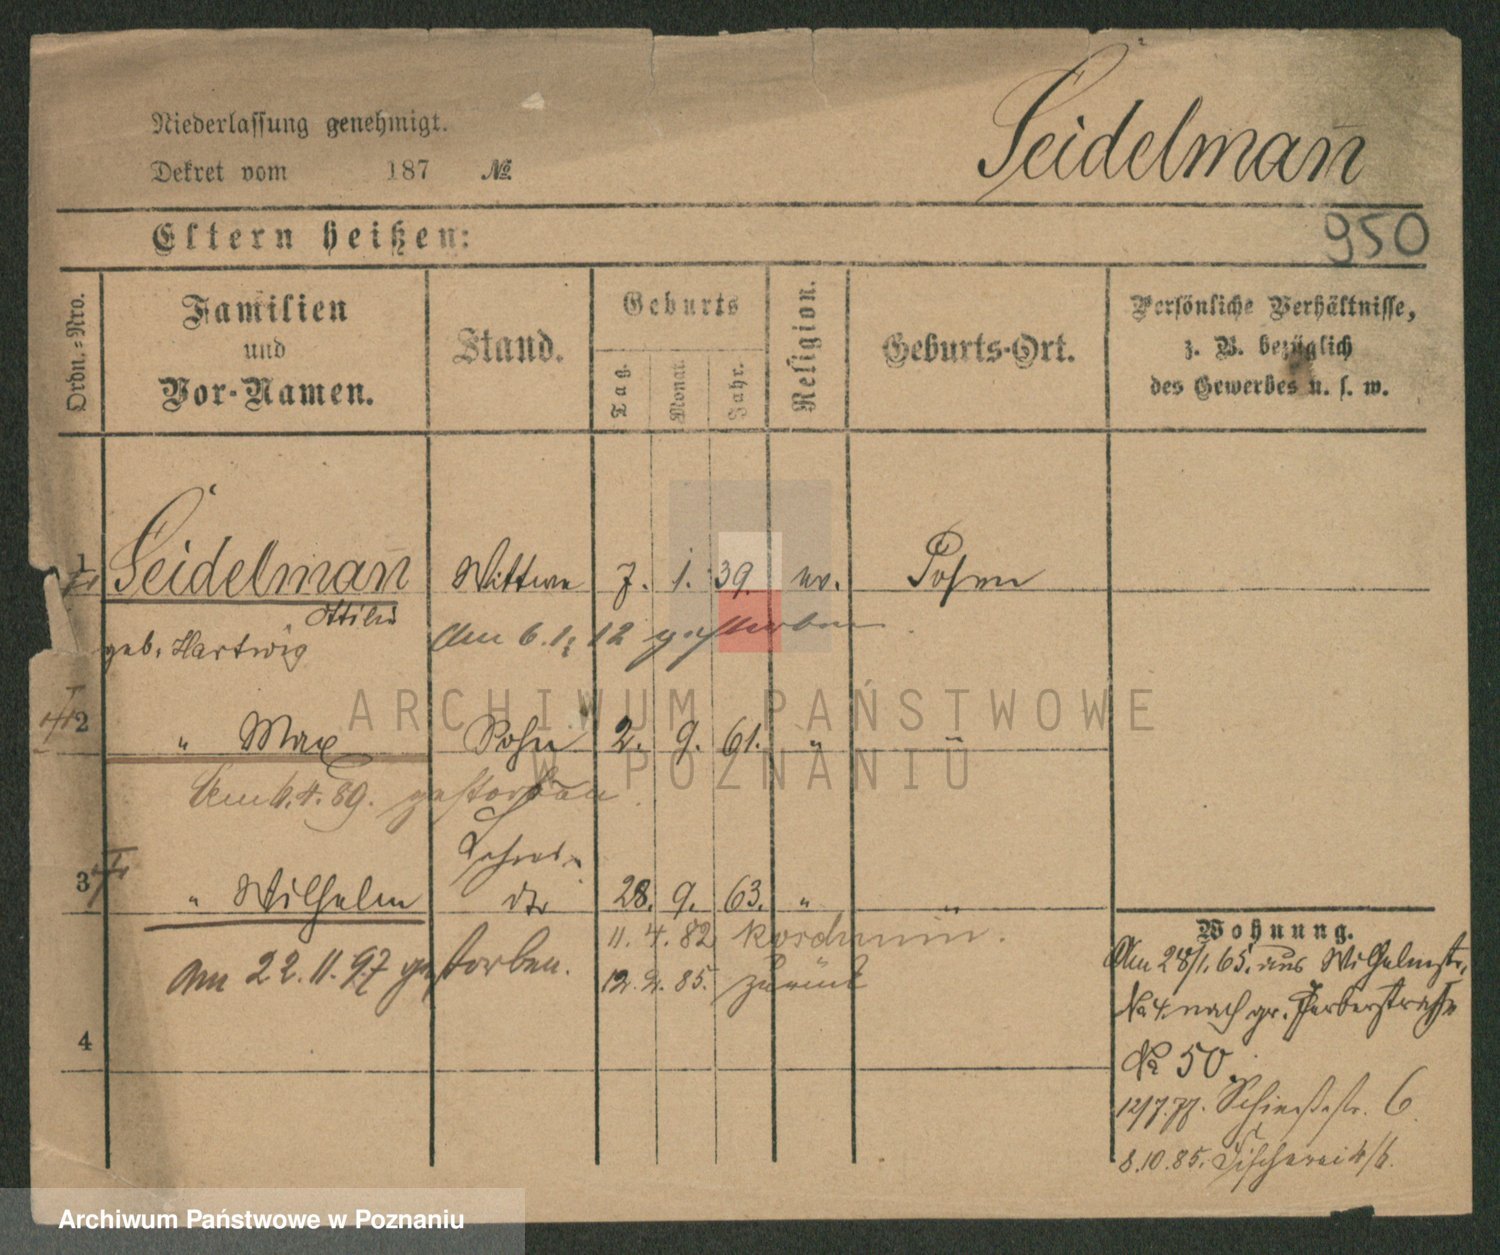 Niederlassung genehmigt.
Dekret vom 187 №
Seidelmañ
950
Eltern heißen:
Ordn.=Nro.
Familien
und
Vor-Namen.
Stand.
Geburts
Tag.
Monat.
Jahr.
Religion.
Geburts-Ort.
Persönliche Verhältnisse,
z. B. bezüglich
des Gewerbes u. s. w.
1 Seidelmañ Wittwe 7. 1. 39. ev. Posen
Ottilie
geb. Hartwig
Am 6. 12 gestorben
2 " Max Sohn 2. 9. 61. "
Am 4. 89. gestorben
3 " Wilhelm 28. 9. 63. " "
11. 4. 82
am 22.11.97 gestorben.
12. 2. 85. zurück
4
Wohnung.
Am 28/1. 65. aus Wilhelmstr.
№ 4. nach gr. Gerberstraße
№ 50.
12/7.77. 6
8.10.85. Fischerei
ARCHIWUM PAŃSTWOWE
W POZNANIU
Archiwum Państwowe w Poznaniu